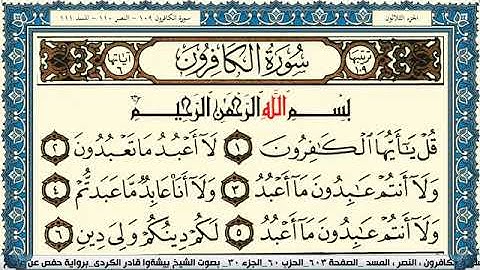 الجزء الثلاثون
سورة الكافرون ١٠٩ - النصر ١١٠ - المسد ١١١
ترتيبها ١٠٩
سُورَةُ الْكَافِرُونَ
آياتها ٦
بِسْمِ اللَّهِ الرَّحْمَٰنِ الرَّحِيمِ
قُلْ يَا أَيُّهَا الْكَافِرُونَ ١ لَا أَعْبُدُ مَا تَعْبُدُونَ ٢
وَلَا أَنتُمْ عَابِدُونَ مَا أَعْبُدُ ٣ وَلَا أَنَا عَابِدٌ مَّا عَبَدتُّمْ ٤
وَلَا أَنتُمْ عَابِدُونَ مَا أَعْبُدُ ٥ لَكُمْ دِينُكُمْ وَلِيَ دِينِ ٦
الكافرون ، النصر ، المسد _ الصفحة ٦٠٣_ الحزب ٦٠_ الجزء ٣٠ _ بصوت الشيخ بيشةوا قادر الكردي_ برواية حفص عن